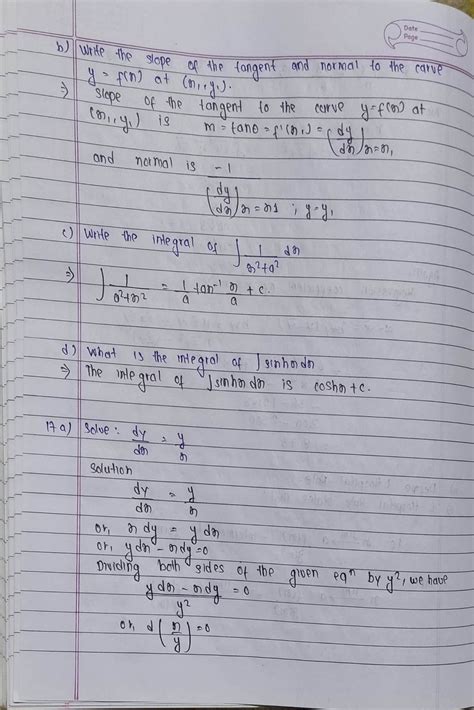 Date
Page
b) Write the slope of the tangent and normal to the curve
y = f(x) at (x₁, y₁).
⇒ Slope of the tangent to the curve y=f(x) at
(x₁, y₁) is m = tanθ = f'(x₁) = (dy/dx)x=x₁
and normal is -1/(dy/dx)x=x1 ; y=y₁
c) Write the integral of ∫ 1/(x²+a²) dx
⇒ ∫ 1/(a²+x²) = 1/a tan⁻¹ x/a + c.
d) What is the integral of ∫sinhxdx
⇒ The integral of ∫sinhxdx is coshx+c.
17 a) Solve: dy/dx = y/x
Solution
dy/dx = y/x
or, x dy = y dx
or, ydx - xdy=0
Dividing both sides of the given eqⁿ by y², we have
(ydx - xdy)/y² = 0
or, d(x/y)=0